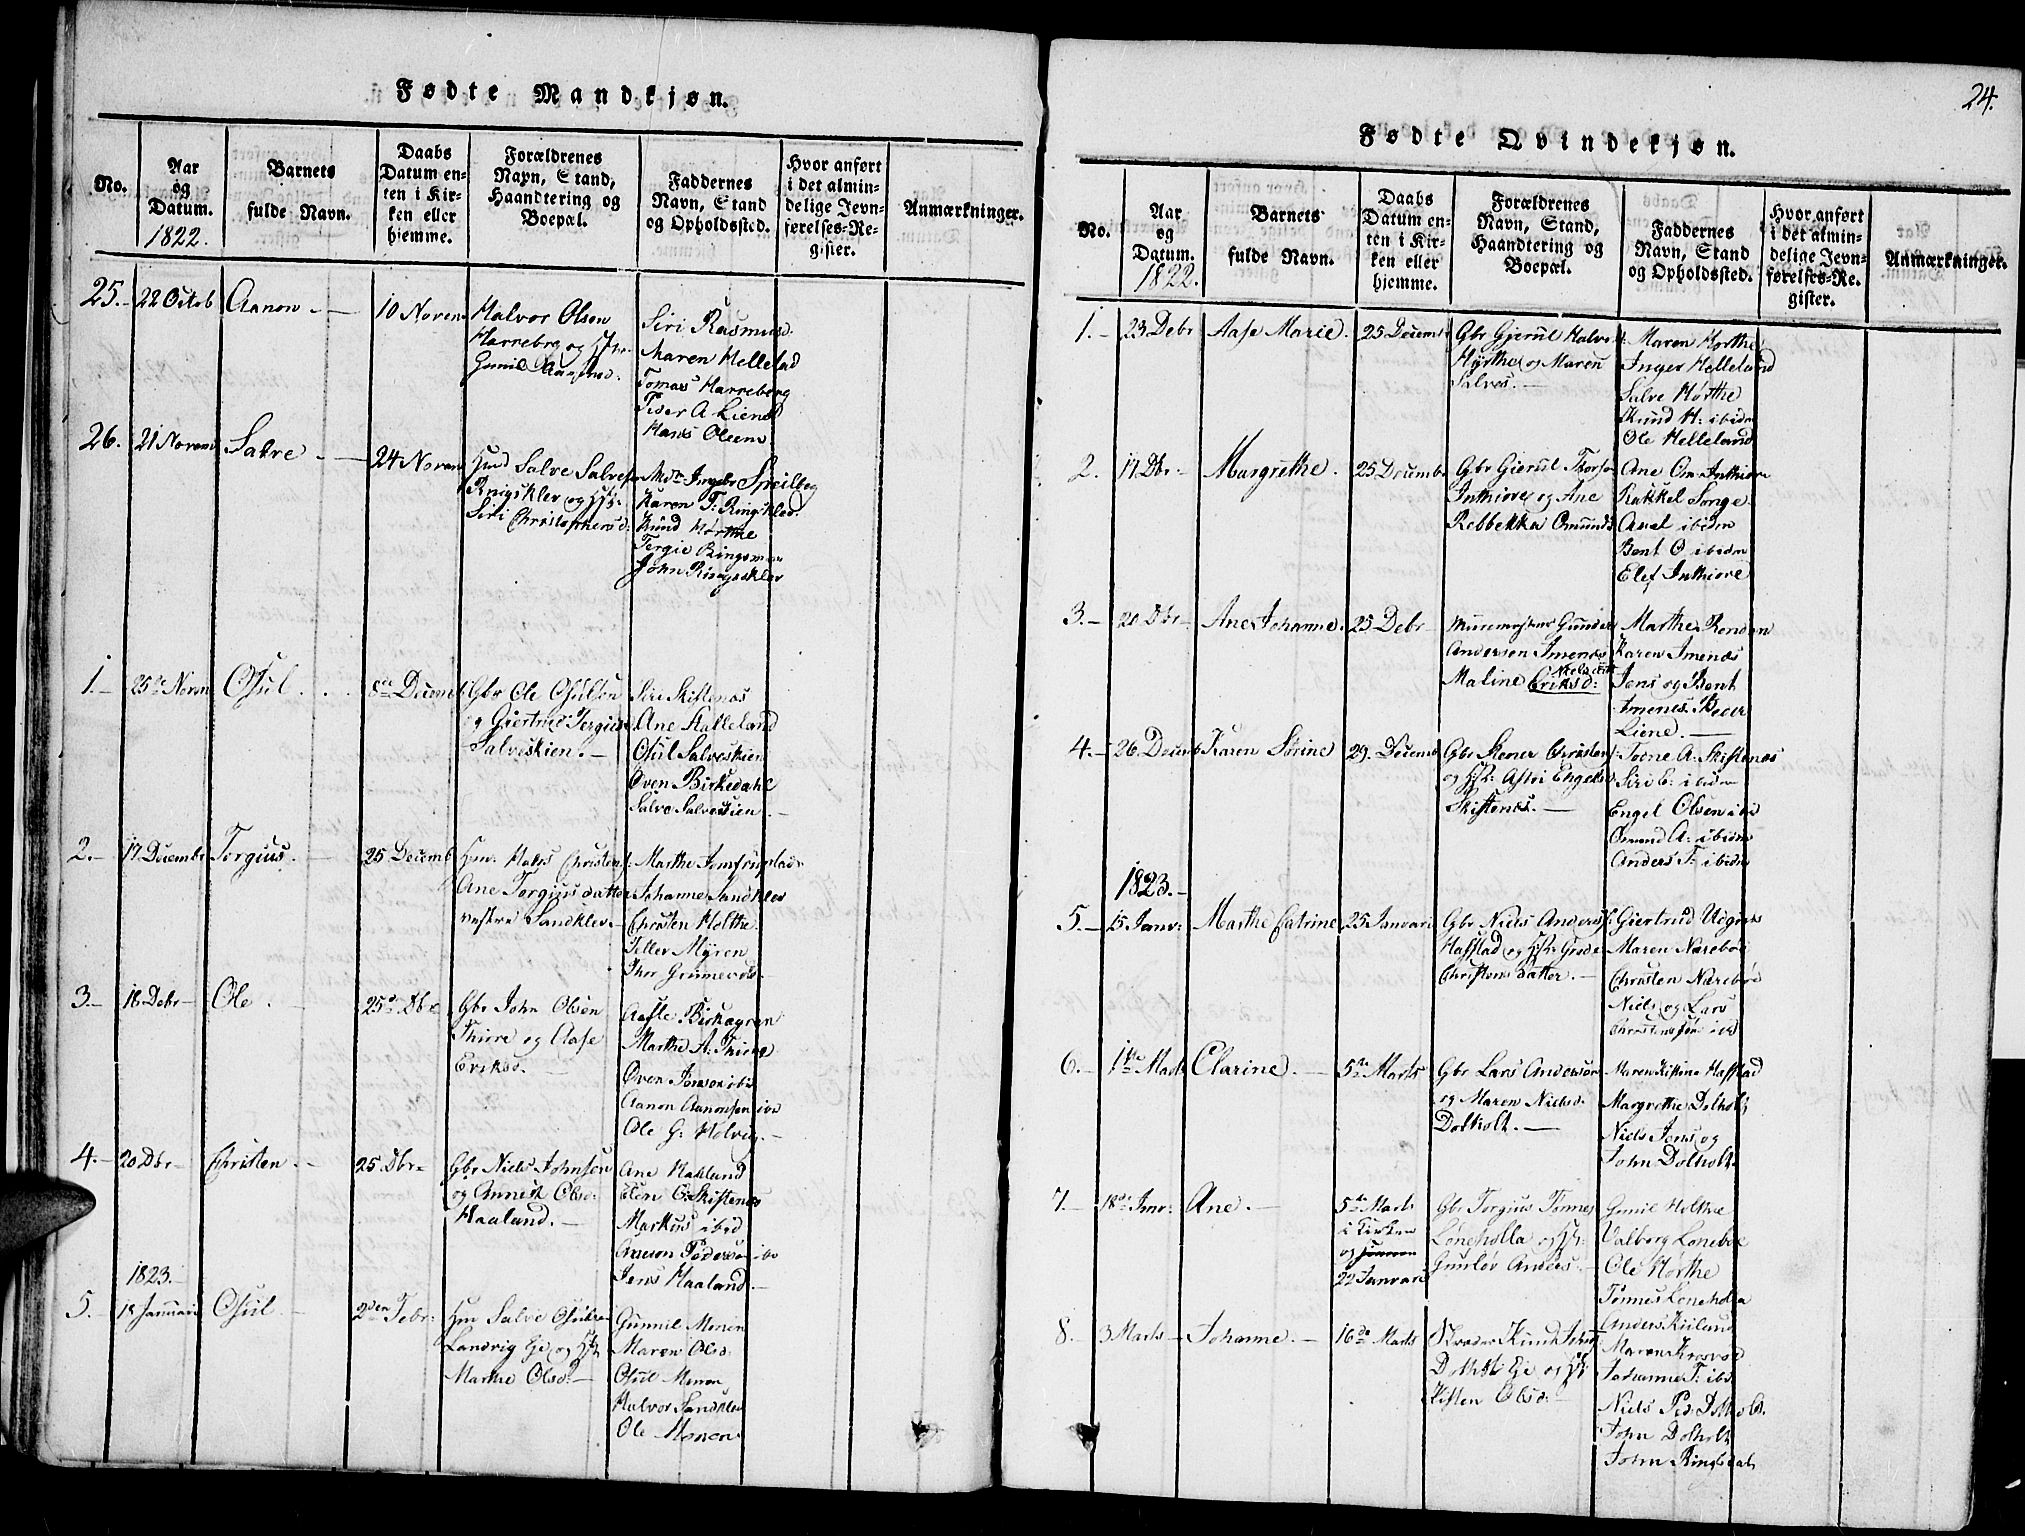 Fødte Mandkjøn.
No.
Aar og Datum. 1822.
Barnets fulde Navn.
Daabs Datum enten i Kirken eller hjemme.
Forældrenes Navn, Stand, Haandtering og Boepæl.
Faddernes Navn, Stand og Opholdssted.
Hvor anført i det almindelige Jevnførelses-Register.
Anmærkninger.
25. 22 Octob Aanon 10 Novem
Halvor Olsen
Harreberg og
Siri Rasmusd.
Maren Hellelad
Tomas Harreberg
Peder A Liene
Hans Oleem
26. 21 Novem Salve 24 Novem
Salve Salves
Ringsklev og
Siri Christophersd:
Ingebr Speilbeg
Karen T: Ringsklev.
Knud Hørthe
Tergie
John Ringsklev
1. 25de Novm Osul 8de Decemb
Gbr Ole Osulsen
og Giertrud Tergiusd
Salveskien.
Siri Skiftenæs
Ane Kalleland
Osul Salveskien
Øven Birkedahl
Salve Salveskien
2. 17 Decembr Torgius. 25 Decemb
Christens:
Ane Torgius datter
vestre Sandklev
Marthe
Johanne Sandklev
Christen Holthe
Teller Myren
Thor
3. 18 Debr Ole 25de Dbr
Gbr John Olsen
Thiore og Aase
Eriksd.
Marthe A: Thiore
Øven Jensen ibd
Aanon Aanonsen ibd
Ole G: Holvig.
4. 20 Dbr Christen 25 Dbr
Gbr Niels Johnsen
og Annest Olsd:
Haaland.
Ane Haaland
Elen O: Skiftenæs
Markus ibid
Pedersen ibd
Jens Haaland
1823.
5. 18 Januari Osul 2den Febr:
Salve Osuls
Landvig Eje og
Marthe Olsd:
Gunnil Monen
Maren Olsd:
Osul Monen
Halvor Sandklev
Ole Monen
24.
Fødte Qvindekjøn.
No.
Aar og Datum. 1822.
Barnets fulde Navn.
Daabs Datum enten i Kirken eller hjemme.
Forældrenes Navn, Stand, Haandtering og Boepæl.
Faddernes Navn, Stand og Opholdssted.
Hvor anført i det almindelige Jevnførelses-Register.
Anmærkninger.
1. 23 Debr Aase Marie. 25 Decemb
Gbr Gjerul Halvs
Hørthe og Maren
Salves.
Maren Hørthe
Inger Helleland
Salve Hørthe
Knud H: ibidm
Ole Helleland
2. 17 Dbr Margrethe. 25 Decembr
Gbr Gierul Thors
Inthiore og Ane
Rebbekka Omunds
Ane Om: Inthiore
Rakkel
Axel ibidm
Bent O ibidm
Elef Inthiore
3. 20 Dbr Ane Johanne. 25 Debr
Muremester Gunder
Andersen Imenæs
Maline Eriksd:
Marthe Renden
Karen Imenæs
Jens og Bent
Imenes. Peder
Liene.
4. 26 Decemb Karen Sørine 29 Decemb
Gbr Stener Christens
og Hst: Astri Engelsd
Skiftenæs.
Tone A: Skiftenæs
Siri C: ibidm
Engel Olsen ibd
Omund A: ibidm
Anders T: ibidm
1823.
5. 15 Janr: Marthe Catrine 25 Januari
Gbr Niels Anders:
Hafstad og Hst:
Christens datter.
Giertrud
Maren Nærebøe
Christen Nærebøe
Niels og Lars
ibd
6. 1ste Marts Clarine. 5te Marts
Gbr Lars Andersen
og Maren Nielsd.
Dolholt.
Maren Kistine Hafstad
Margrethe Dolholt
Niels Jens og
John Dolholt.
7. 18de Jnr: Ane. 5te Marts
i Kirken
og
22 Januari
Gbr Torgius Tønnes
Løneholla og Hst:
Gunløv Anders.
Gunil Holthe
Valborg Lonebøe
Ole Hørthe
Tønnes Løneholla
Anders
8. 3 Marts Johanne. 16de Marts
Knud
Dolholt Eje og Hst:
Kisten Olsd:
Maren
Johanne T: ibd
Niels Ped: Dolhold.
John Dolholt
John Ringsdal